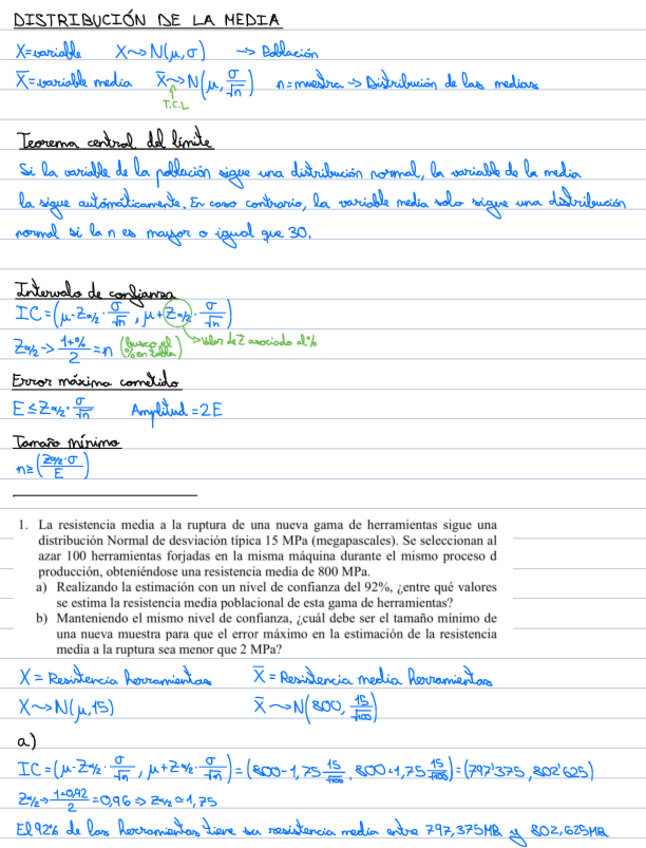 DISTRIBUCIÓN DE LA MEDIA
X=variable X~>N(μ,σ) -> Población
X̄=variable media X̄~>N(μ, σ/√n) n=muestra -> Distribución de las medias
T.C.L
Teorema central del límite
Si la variable de la población sigue una distribución normal, la variable de la media
la sigue automáticamente. En caso contrario, la variable media solo sigue una distribución
normal si la n es mayor o igual que 30.
Intervalo de confianza
IC=(μ-Zα/2·σ/√n, μ+Zα/2·σ/√n)
Zα/2 -> (1+%)/2 = n (busco el % en tabla) -> Valor de Z asociado al %
Error máximo cometido
E≤Zα/2·σ/√n Amplitud=2E
Tamaño mínimo
n≥(Zα/2·σ/E)
1. La resistencia media a la ruptura de una nueva gama de herramientas sigue una
distribución Normal de desviación típica 15 MPa (megapascales). Se seleccionan al
azar 100 herramientas forjadas en la misma máquina durante el mismo proceso d
producción, obteniéndose una resistencia media de 800 MPa.
a) Realizando la estimación con un nivel de confianza del 92%, ¿entre qué valores
se estima la resistencia media poblacional de esta gama de herramientas?
b) Manteniendo el mismo nivel de confianza, ¿cuál debe ser el tamaño mínimo de
una nueva muestra para que el error máximo en la estimación de la resistencia
media a la ruptura sea menor que 2 MPa?
X = Resistencia herramientas X̄ = Resistencia media herramientas
X~>N(μ,15) X̄~>N(800, 15/√100)
a)
IC=(μ-Zα/2·σ/√n, μ+Zα/2·σ/√n)=(800-1,75 15/√100, 800+1,75 15/√100)=(797'375, 802'625)
Zα/2->(1+0,92)/2=0,96 => Zα/2≃1,75
El 92% de las herramientas tiene su resistencia media entre 797,375MPa y 802,625MPa